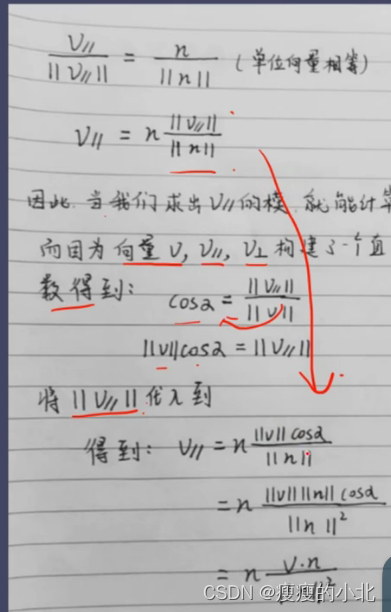 V∥/||V∥|| = n/||n|| (单位向量相等)
V∥ = n ||V∥||/||n||
因此, 当我们求出V∥的模, 就能计算
而因为向量V, V∥, V⊥ 构建了一个直
数得到: cosα = ||V∥||/||V||
||V||cosα = ||V∥||
将||V∥||代入到
得到: V∥ = n ||V||cosα/||n||
= n ||V||||n||cosα/||n||²
= n V·n/||n||²
CSDN @瘦瘦的小北